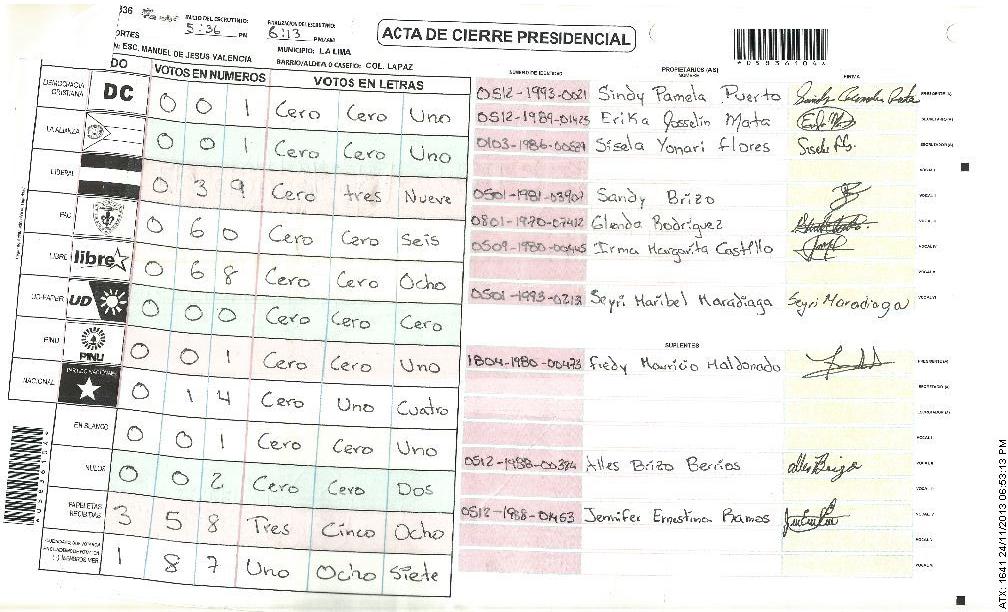 336 INICIO DEL ESCRUTINIO: 5:36 PM FINALIZACION DEL ESCRUTINIO: 6:13 PM/AM ACTA DE CIERRE PRESIDENCIAL
ORTES MUNICIPIO: LA LIMA
N: ESC. MANUEL DE JESUS VALENCIA BARRIO/ALDEA O CASERIO: COL. LAPAZ
DO VOTOS EN NUMEROS VOTOS EN LETRAS
DEMOCRACIA CRISTIANA DC 0 0 1 Cero Cero Uno
LA ALIANZA 0 0 1 Cero Cero Uno
LIBERAL 0 3 9 Cero tres Nueve
PAC 0 6 0 Cero Cero Seis
LIBRE libre 0 6 8 Cero Cero Ocho
UD-FAPER UD 0 0 0 Cero Cero Cero
PINU PINU 0 0 1 Cero Cero Uno
NACIONAL PARTIDO NACIONAL 0 1 4 Cero Uno Cuatro
EN BLANCO 0 0 1 Cero Cero Uno
NULOS 0 0 2 Cero Cero Dos
PAPELETAS RECIBIDAS 3 5 8 Tres Cinco Ocho
1 8 7 Uno Ocho Siete
NUMERO DE IDENTIDAD PROPIETARIOS (AS) NOMBRE FIRMA
0512-1993-0021 Sindy Pamela Puerto PRESIDENTE (A)
0512-1989-01425 Erika Josselin Mata SECRETARIO (A)
0103-1986-00689 Sisela Yonari Flores ESCRUTADOR (A)
VOCAL I
0501-1981-03902 Sandy Brizo VOCAL II
0801-1970-07412 Glenda Rodriguez VOCAL III
0509-1980-00445 Irma Margarita Castillo VOCAL IV
VOCAL V
0501-1993-0213 Seyri Maribel Maradiaga Seyri Maradiaga VOCAL VI
SUPLENTES
1804-1980-00473 Fredy Mauricio Maldonado PRESIDENTE (A)
SECRETARIO (A)
ESCRUTADOR (A)
VOCAL I
0512-1988-00324 Alles Brizo Berrios VOCAL II
VOCAL III
0512-1988-01453 Jennifer Ernestina Ramos VOCAL IV
VOCAL V
VOCAL VI
ATX: 1641 24/11/2013 06:53:13 PM